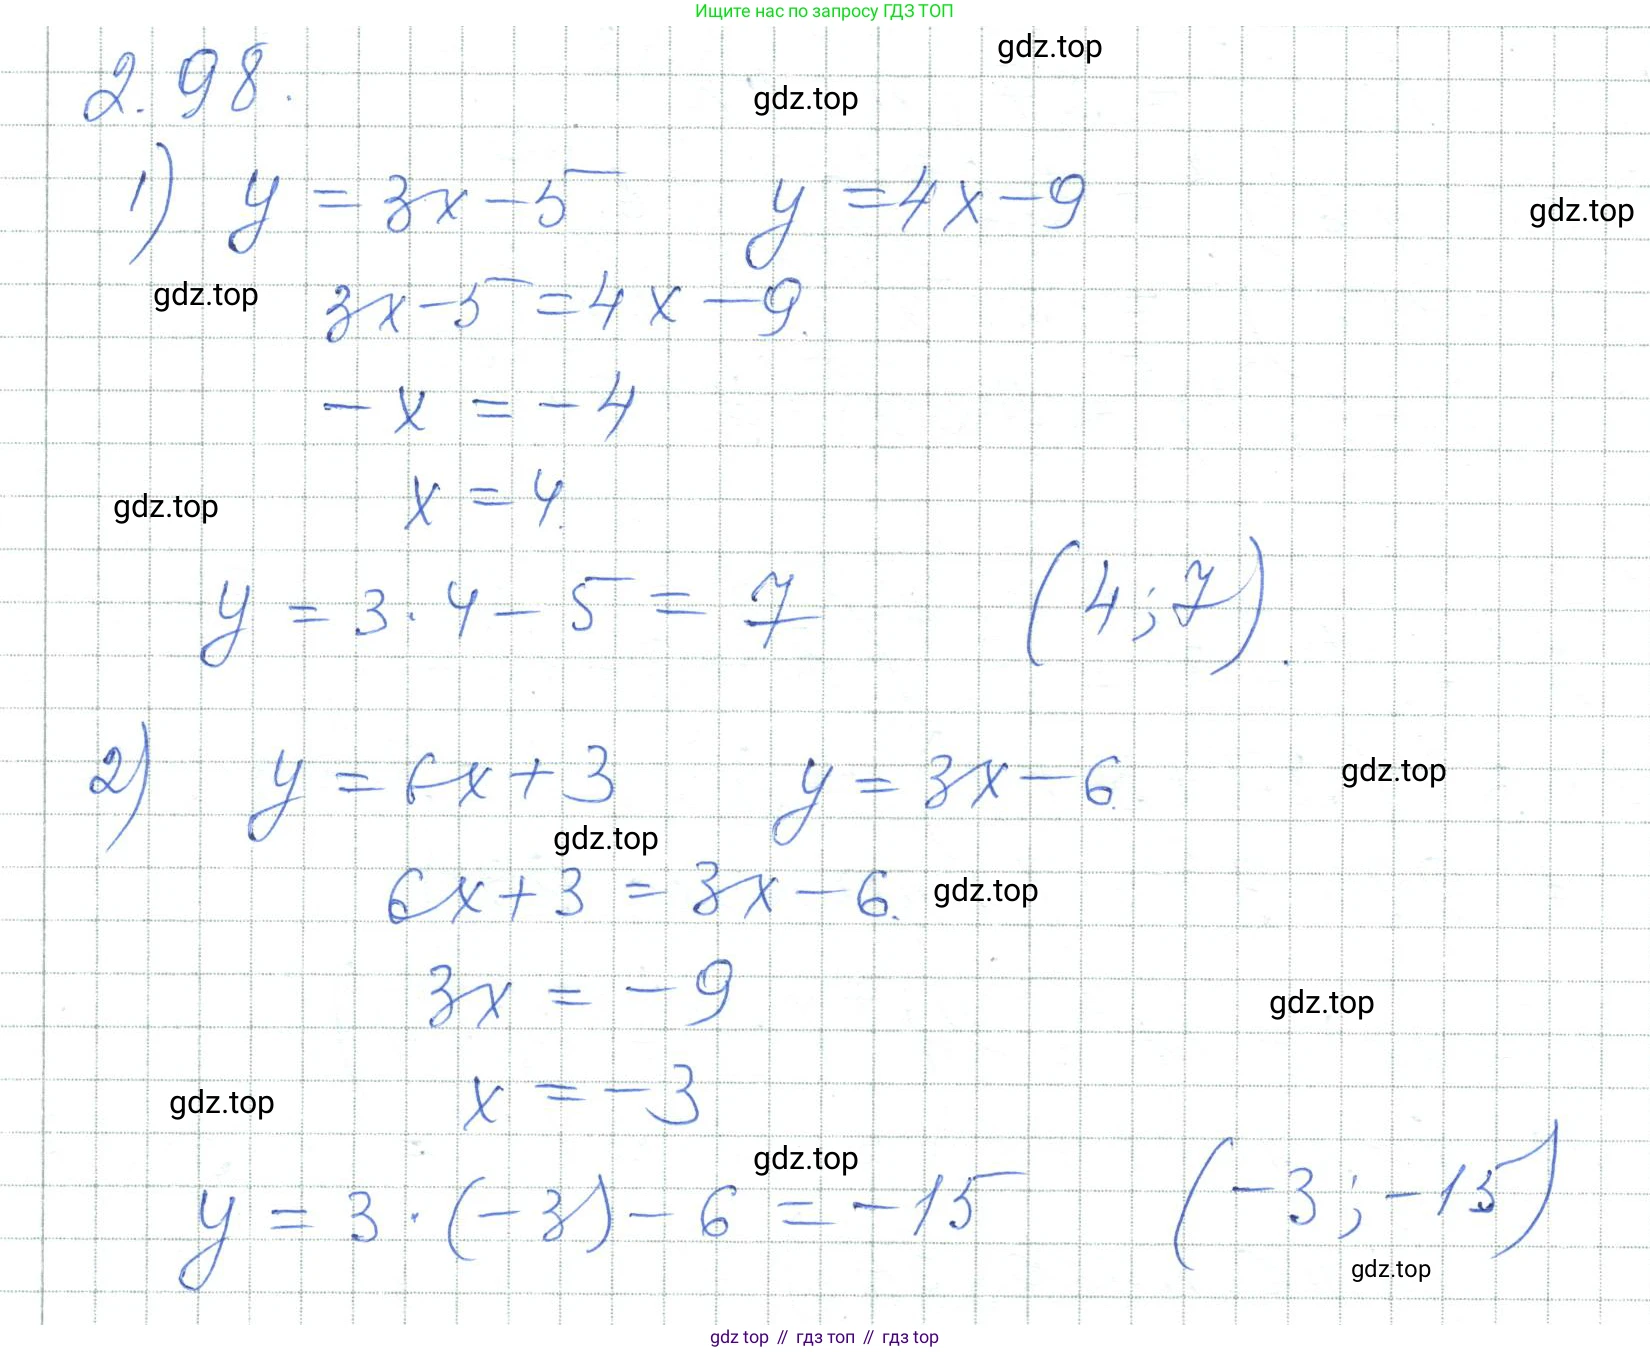 Ищите нас по запросу ГДЗ ТОП
gdz.top
2.98.
gdz.top
1) y = 3x - 5 y = 4x - 9
gdz.top
gdz.top 3x - 5 = 4x - 9.
- x = - 4
gdz.top x = 4.
y = 3 · 4 - 5 = 7 (4; 7).
2) y = 6x + 3 y = 3x - 6. gdz.top
gdz.top
6x + 3 = 3x - 6. gdz.top
3x = - 9 gdz.top
gdz.top x = - 3
gdz.top
y = 3 · (-3) - 6 = - 15 (-3; -15)
gdz.top
gdz top // гдз топ // гдз top